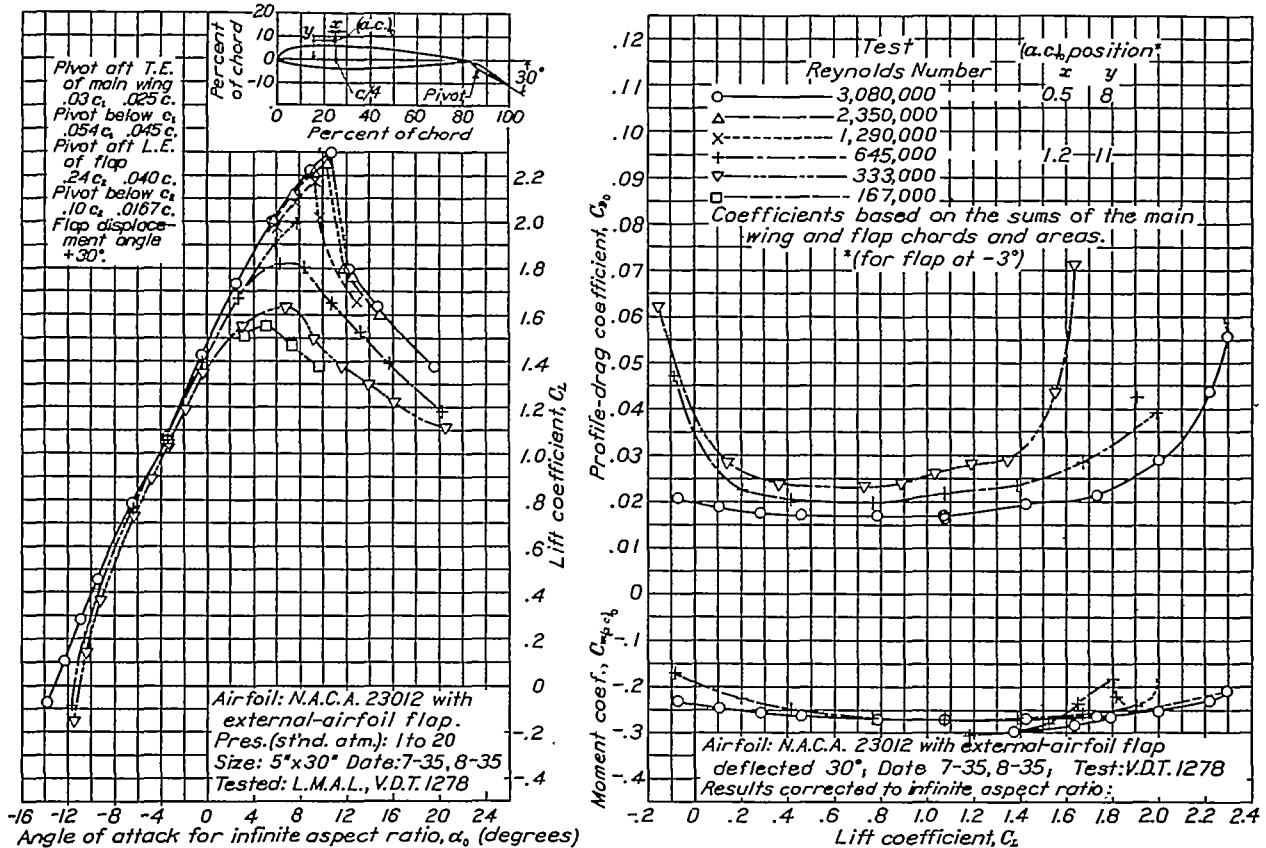 Pivot aft T.E.
of main wing
.03 c₁ .025 c.
Pivot below c₁
.054 c₁ .045 c.
Pivot aft L.E.
of flap
.24 c₂ .040 c.
Pivot below c₂
.10 c₂ .0167 c.
Flap displace-
ment angle
+30°.
Percent
of chord
20
10
0
-10
y x (a.c.)₀
c/4
Pivot
30°
0 20 40 60 80 100
Percent of chord
2.2
2.0
1.8
1.6
1.4
1.2
1.0
.8
.6
.4
.2
0
-.2
-.4
Lift coefficient, C_L
Airfoil: N.A.C.A. 23012 with
external-airfoil flap.
Pres.(st'nd. atm.): 1 to 20
Size: 5"x30" Date: 7-35, 8-35
Tested: L.M.A.L., V.D.T. 1278
-16 -12 -8 -4 0 4 8 12 16 20 24
Angle of attack for infinite aspect ratio, α₀ (degrees)
.12
.11
.10
.09
.08
.07
.06
.05
.04
.03
.02
.01
0
Profile-drag coefficient, C_D₀
Test (a.c.)₀ position*
Reynolds Number x y
3,080,000 0.5 8
2,350,000
1,290,000
645,000 1.2 11
333,000
167,000
Coefficients based on the sums of the main
wing and flap chords and areas.
*(for flap at -3°)
-.1
-.2
-.3
-.4
Moment coef., C_m(a.c.)₀
Airfoil: N.A.C.A. 23012 with external-airfoil flap
deflected 30°; Date 7-35, 8-35; Test: V.D.T. 1278
Results corrected to infinite aspect ratio:
-.2 0 .2 .4 .6 .8 1.0 1.2 1.4 1.6 1.8 2.0 2.2 2.4
Lift coefficient, C_L